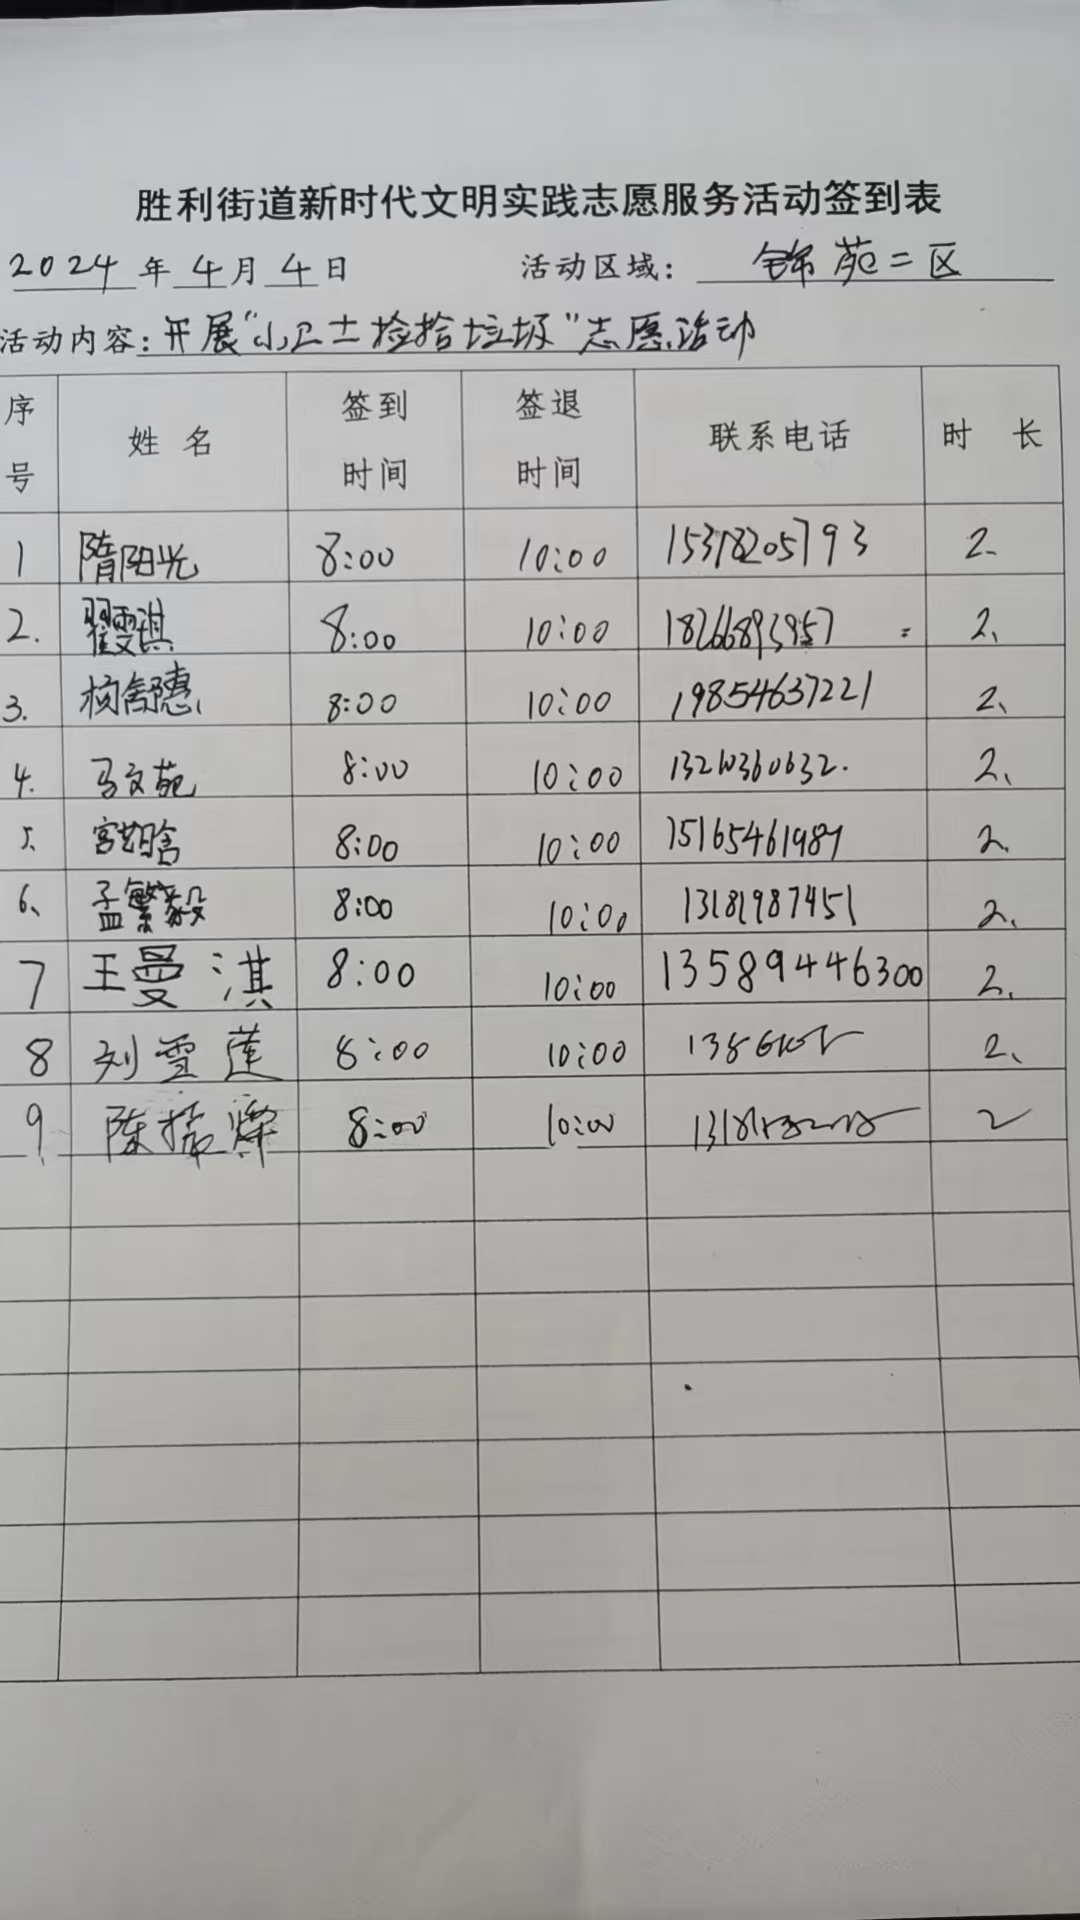 胜利街道新时代文明实践志愿服务活动签到表
2024年4月4日 活动区域：锦苑二区
活动内容：开展“小卫士捡拾垃圾”志愿活动
序号 姓名 签到时间 签退时间 联系电话 时长
1 隋阳光 8:00 10:00 15318205793 2.
2. 翟雯琪 8:00 10:00 18266893957 2、
3. 杨舒惠 8:00 10:00 19854637221 2、
4. 马文苑 8:00 10:00 13210360632. 2、
5、 宫 晗 8:00 10:00 15165461987 2、
6、 孟繁毅 8:00 10:00 13181987451 2、
7 王曼淇 8:00 10:00 13589446300 2、
8 刘雪莲 8:00 10:00 2、
9 陈 8:00 10:00 2